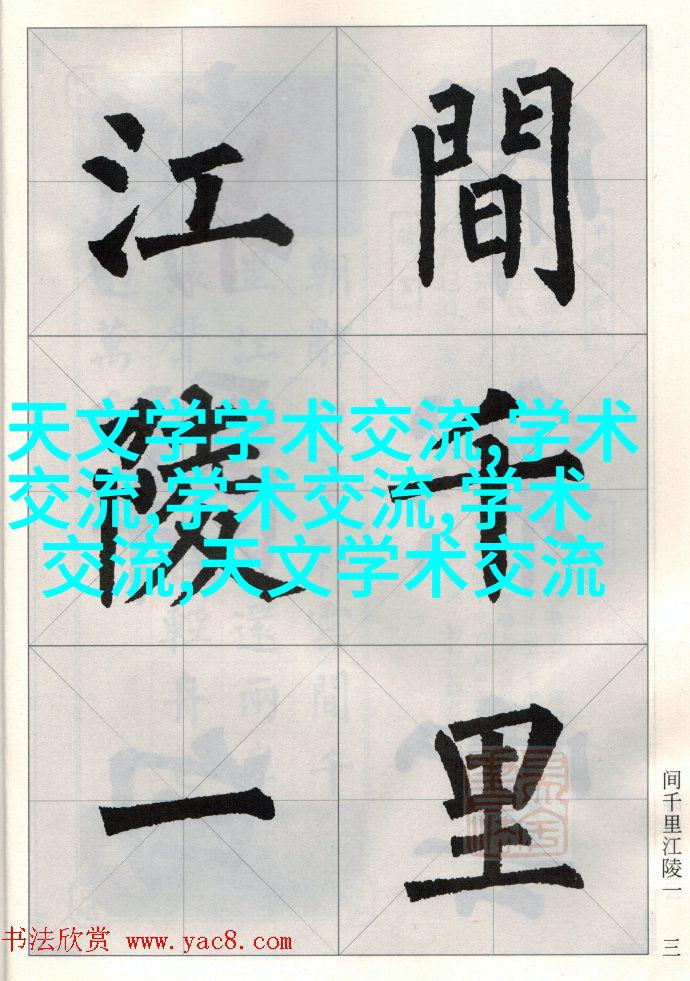 間千里
江陵一
天文学学术交流,学术
交流,学术交流,学术
交流,天文学术交流
间千里江陵一
三
书法欣赏 www.yac8.com